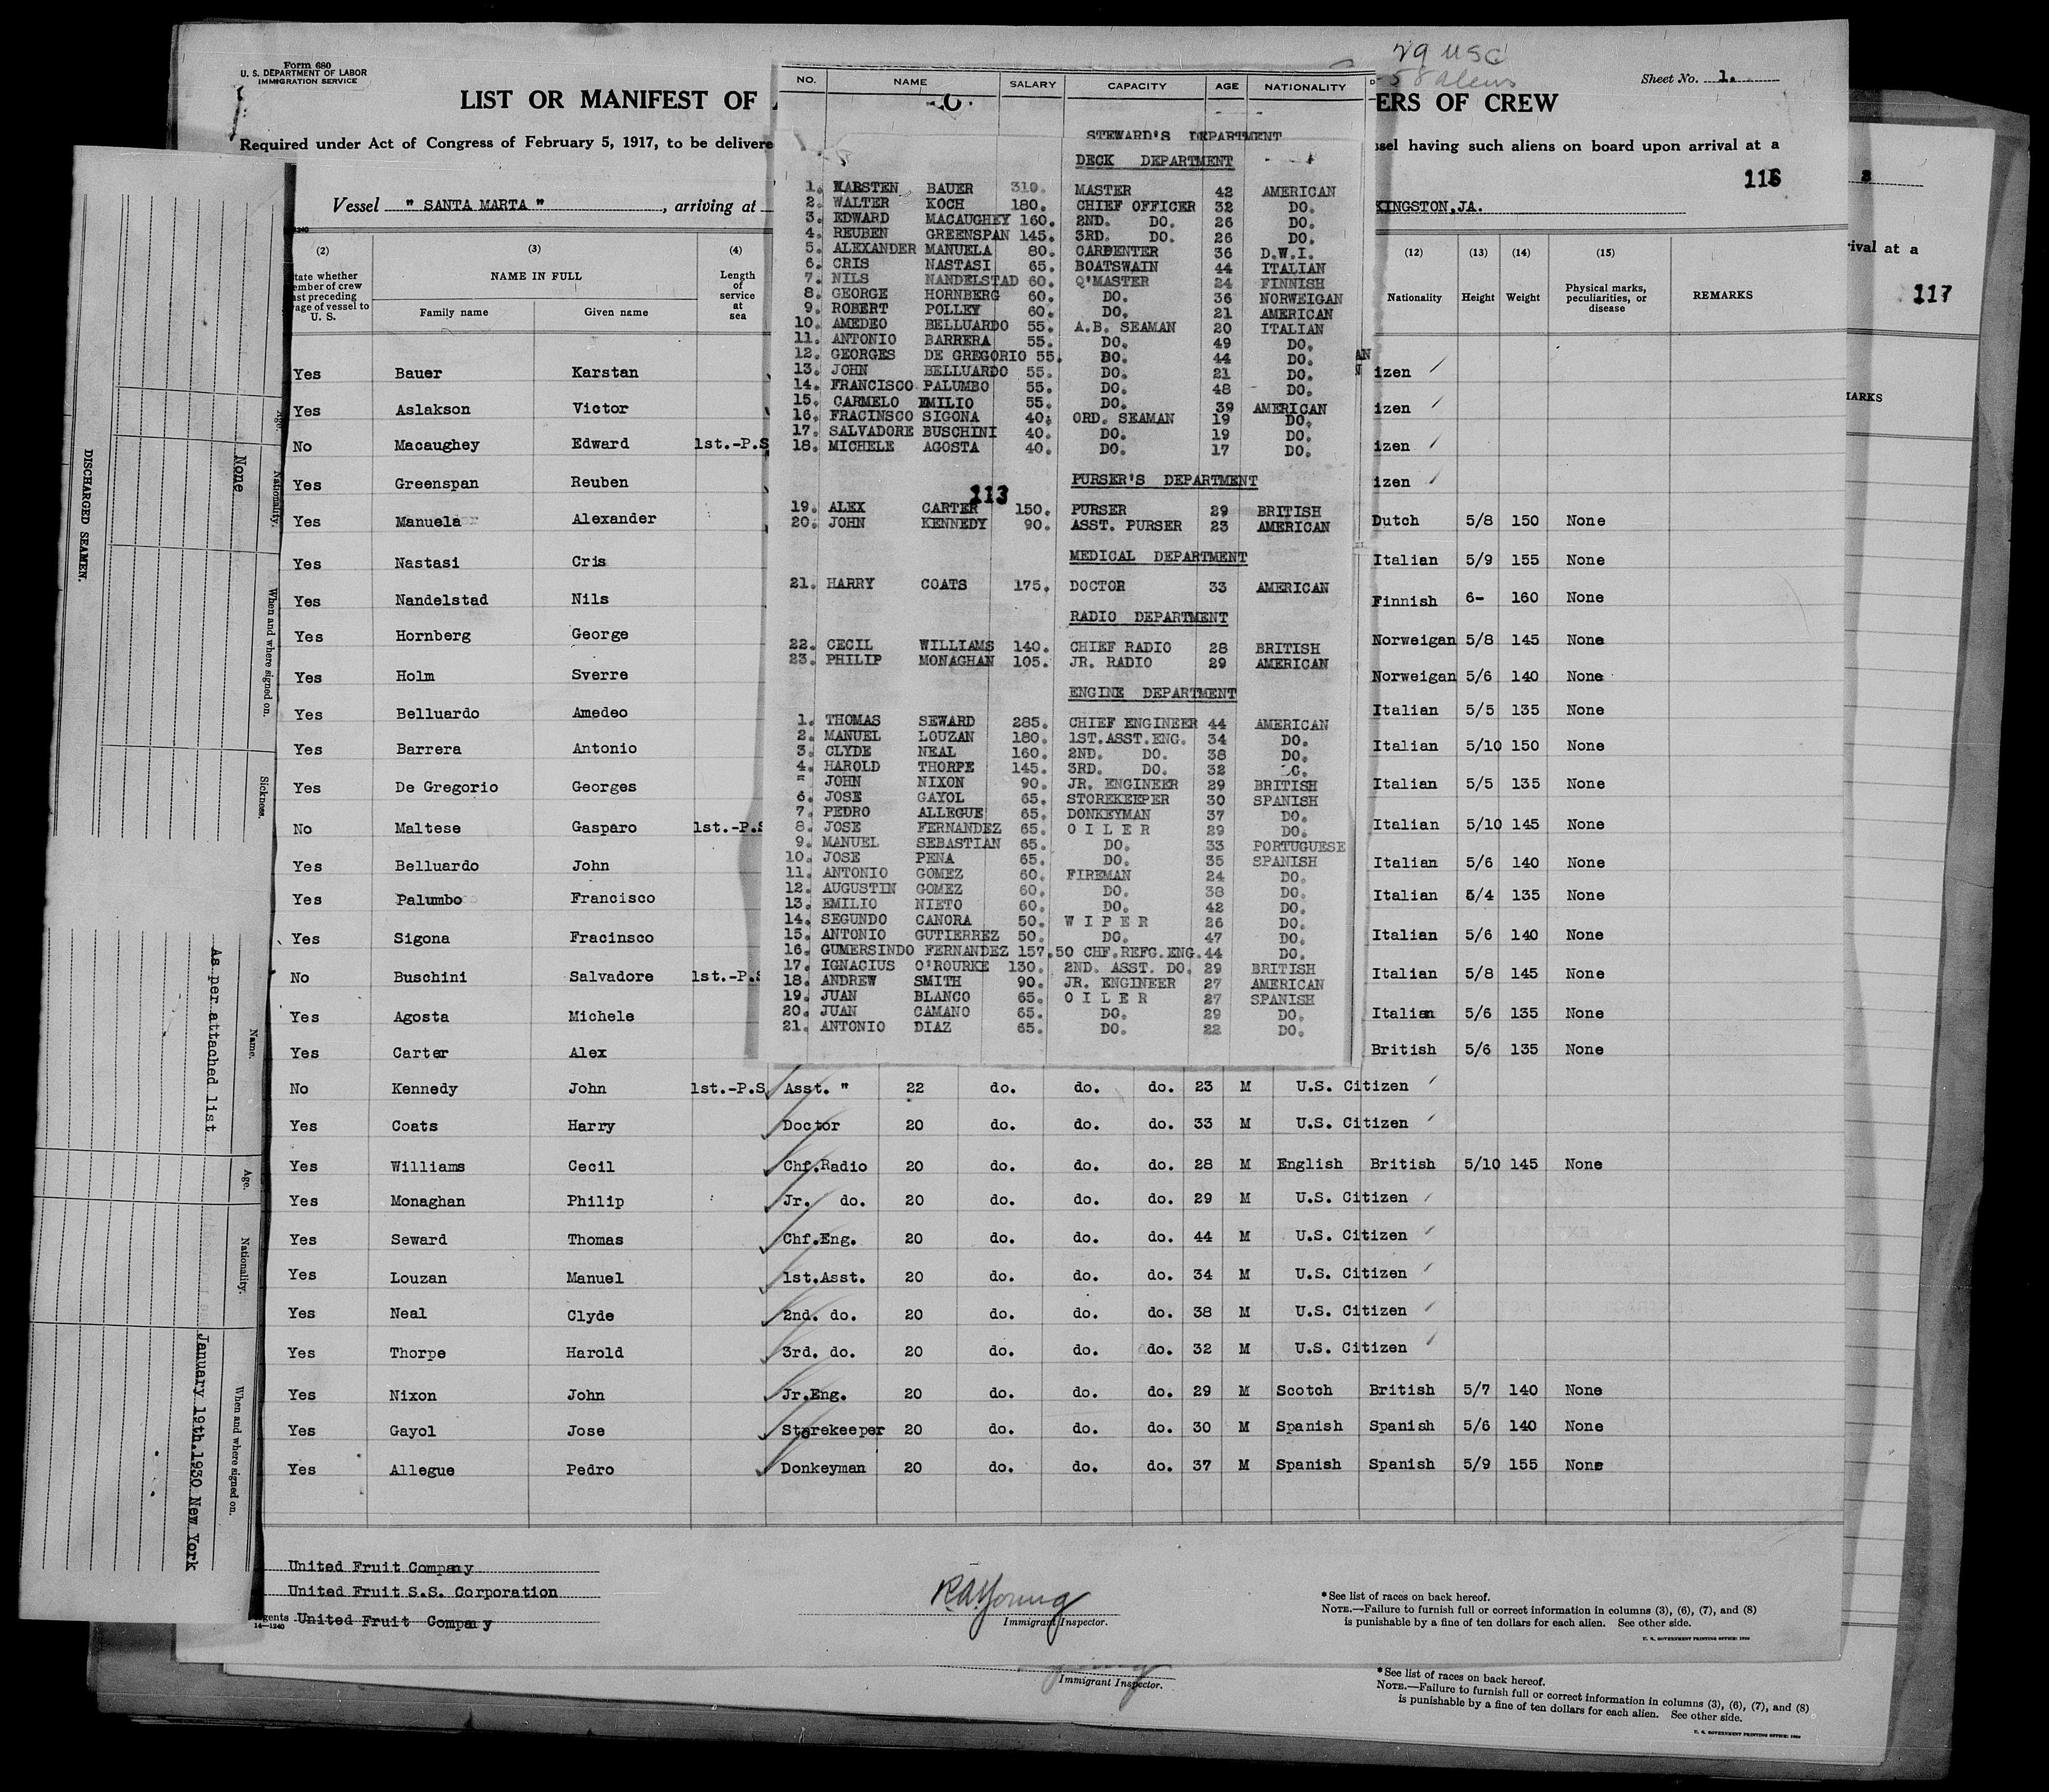 Form 680
U. S. DEPARTMENT OF LABOR
IMMIGRATION SERVICE
29 USC
58 aliens
Sheet No. 1.
LIST OR MANIFEST OF
ERS OF CREW
Required under Act of Congress of February 5, 1917, to be delivere
ssel having such aliens on board upon arrival at a
116
Vessel " SANTA MARTA " , arriving at
KINGSTON,JA.
(2) (3) (4) (12) (13) (14) (15)
tate whether
ember of crew
ast preceding
age of vessel to
U. S.
NAME IN FULL
Family name Given name
Length
of
service
at
sea
Nationality Height Weight
Physical marks,
peculiarities, or
disease
REMARKS
Yes Bauer Karstan izen
Yes Aslakson Victor izen
No Macaughey Edward 1st.-P.S izen
Yes Greenspan Reuben izen
Yes Manuela Alexander Dutch 5/8 150 None
Yes Nastasi Cris Italian 5/9 155 None
Yes Nandelstad Nils Finnish 6- 160 None
Yes Hornberg George Norweigan 5/8 145 None
Yes Holm Sverre Norweigan 5/6 140 None
Yes Belluardo Amedeo Italian 5/5 135 None
Yes Barrera Antonio Italian 5/10 150 None
Yes De Gregorio Georges Italian 5/5 135 None
No Maltese Gasparo 1st.-P.S Italian 5/10 145 None
Yes Belluardo John Italian 5/6 140 None
Yes Palumbo Francisco Italian 5/4 135 None
Yes Sigona Fracinsco Italian 5/6 140 None
No Buschini Salvadore 1st.-P.S Italian 5/8 145 None
Yes Agosta Michele Italian 5/6 135 None
Yes Carter Alex British 5/6 135 None
No Kennedy John 1st.-P.S Asst. " 22 do. do. do. 23 M U.S. Citizen
Yes Coats Harry Doctor 20 do. do. do. 33 M U.S. Citizen
Yes Williams Cecil Chf.Radio 20 do. do. do. 28 M English British 5/10 145 None
Yes Monaghan Philip Jr. do. 20 do. do. do. 29 M U.S. Citizen
Yes Seward Thomas Chf.Eng. 20 do. do. do. 44 M U.S. Citizen
Yes Louzan Manuel 1st.Asst. 20 do. do. do. 34 M U.S. Citizen
Yes Neal Clyde 2nd. do. 20 do. do. do. 38 M U.S. Citizen
Yes Thorpe Harold 3rd. do. 20 do. do. do. 32 M U.S. Citizen
Yes Nixon John Jr.Eng. 20 do. do. do. 29 M Scotch British 5/7 140 None
Yes Gayol Jose Storekeeper 20 do. do. do. 30 M Spanish Spanish 5/6 140 None
Yes Allegue Pedro Donkeyman 20 do. do. do. 37 M Spanish Spanish 5/9 155 None
United Fruit Company
United Fruit S.S. Corporation
gents United Fruit Company
14—1240
R.A.Young
Immigrant Inspector.
* See list of races on back hereof.
NOTE.—Failure to furnish full or correct information in columns (3), (6), (7), and (8)
is punishable by a fine of ten dollars for each alien. See other side.
U. S. GOVERNMENT PRINTING OFFICE: 1928
NO. NAME SALARY CAPACITY AGE NATIONALITY
STEWARD'S DEPARTMENT
DECK DEPARTMENT
1. KARSTEN BAUER 310. MASTER 42 AMERICAN
2. WALTER KOCH 180. CHIEF OFFICER 32 DO.
3. EDWARD MACAUGHEY 160. 2ND. DO. 26 DO.
4. REUBEN GREENSPAN 145. 3RD. DO. 26 DO.
5. ALEXANDER MANUELA 80. CARPENTER 36 D.W.I.
6. CRIS NASTASI 65. BOATSWAIN 44 ITALIAN
7. NILS NANDELSTAD 60. Q'MASTER 24 FINNISH
8. GEORGE HORNBERG 60. DO. 36 NORWEIGAN
9. ROBERT POLLEY 60. DO. 21 AMERICAN
10. AMEDEO BELLUARDO 55. A.B. SEAMAN 20 ITALIAN
11. ANTONIO BARRERA 55. DO. 49 DO.
12. GEORGES DE GREGORIO 55. DO. 44 DO.
13. JOHN BELLUARDO 55. DO. 21 DO.
14. FRANCISCO PALUMBO 55. DO. 48 DO.
15. CARMELO EMILIO 55. DO. 39 AMERICAN
16. FRACINSCO SIGONA 40. ORD. SEAMAN 19 DO.
17. SALVADORE BUSCHINI 40. DO. 19 DO.
18. MICHELE AGOSTA 40. DO. 17 DO.
PURSER'S DEPARTMENT
113
19. ALEX CARTER 150. PURSER 29 BRITISH
20. JOHN KENNEDY 90. ASST. PURSER 23 AMERICAN
MEDICAL DEPARTMENT
21. HARRY COATS 175. DOCTOR 33 AMERICAN
RADIO DEPARTMENT
22. CECIL WILLIAMS 140. CHIEF RADIO 28 BRITISH
23. PHILIP MONAGHAN 105. JR. RADIO 29 AMERICAN
ENGINE DEPARTMENT
1. THOMAS SEWARD 285. CHIEF ENGINEER 44 AMERICAN
2. MANUEL LOUZAN 180. 1ST.ASST.ENG. 34 DO.
3. CLYDE NEAL 160. 2ND. DO. 38 DO.
4. HAROLD THORPE 145. 3RD. DO. 32
JOHN NIXON 90. JR. ENGINEER 29 BRITISH
6. JOSE GAYOL 65. STOREKEEPER 30 SPANISH
7. PEDRO ALLEGUE 65. DONKEYMAN 37 DO.
8. JOSE FERNANDEZ 65. O I L E R 29 DO.
9. MANUEL SEBASTIAN 65. DO. 33 PORTUGUESE
10. JOSE PENA 65. DO. 35 SPANISH
11. ANTONIO GOMEZ 60. FIREMAN 24 DO.
12. AUGUSTIN GOMEZ 60. DO. 38 DO.
13. EMILIO NIETO 60. DO. 42 DO.
14. SEGUNDO CANORA 50. W I P E R 26 DO.
15. ANTONIO GUTIERREZ 50. DO. 47 DO.
16. GUMERSINDO FERNANDEZ 157.50 CHF.REFG.ENG. 44 DO.
17. IGNACIUS O'ROURKE 130. 2ND. ASST. DO. 29 BRITISH
18. ANDREW SMITH 90. JR. ENGINEER 27 AMERICAN
19. JUAN BLANCO 65. O I L E R 27 SPANISH
20. JUAN CAMANO 65. DO. 29 DO.
21. ANTONIO DIAZ 65. DO. 22 DO.
DISCHARGED SEAMEN.
Age. Nationality. When and where signed on. Sickness.
None
Name. Age. Nationality. When and where signed on.
As per attached list
January 19th.1930 New York
2
rival at a
117
MARKS
Immigrant Inspector.
* See list of races on back hereof.
NOTE.—Failure to furnish full or correct information in columns (3), (6), (7), and (8)
is punishable by a fine of ten dollars for each alien. See other side.
U. S. GOVERNMENT PRINTING OFFICE: 1928